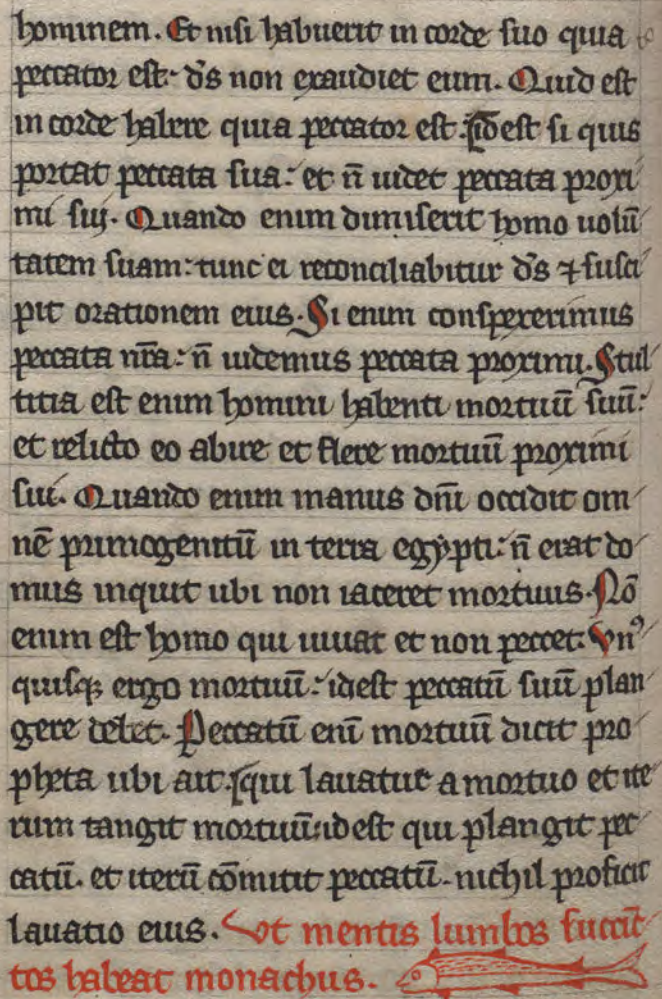 hominem. Et nisi habuerit in corde suo quia
peccator est: ds̄ non exaudiet eum. Quid est
in corde habere quia peccator est. idest si quis
portat peccata sua: et n̄ uidet peccata proxi
mi sui. Quando enim dimiserit homo uolū
tatem suam: tunc ei reconciliabitur ds̄ ⁊ susci
pit orationem eius. Si enim conspexerimus
peccata nr̄a: n̄ uidemus peccata proximi. Stul
titia est enim homini habenti mortuū suū:
et relicto eo abire et flere mortuū proximi
sui. Quando enim manus dnī occidit om
nē primogenitū in terra egẏpti: n̄ erat do
mus inquit ubi non iaceret mortuus. Nō
enim est homo qui uiuat et non peccet. Vnꝰ
quisqꝫ ergo mortuū: idest peccatū suū plan
gere debet. Peccatū enī mortuū dicit pro
pheta ubi ait. qui lauatur a mortuo et ite
rum tangit mortuū: idest qui plangit pec
catū. et iterū cōmittit peccatū. nichil proficit
lauatio eius. Vt mentis lumbos succīc
tos habeat monachus.